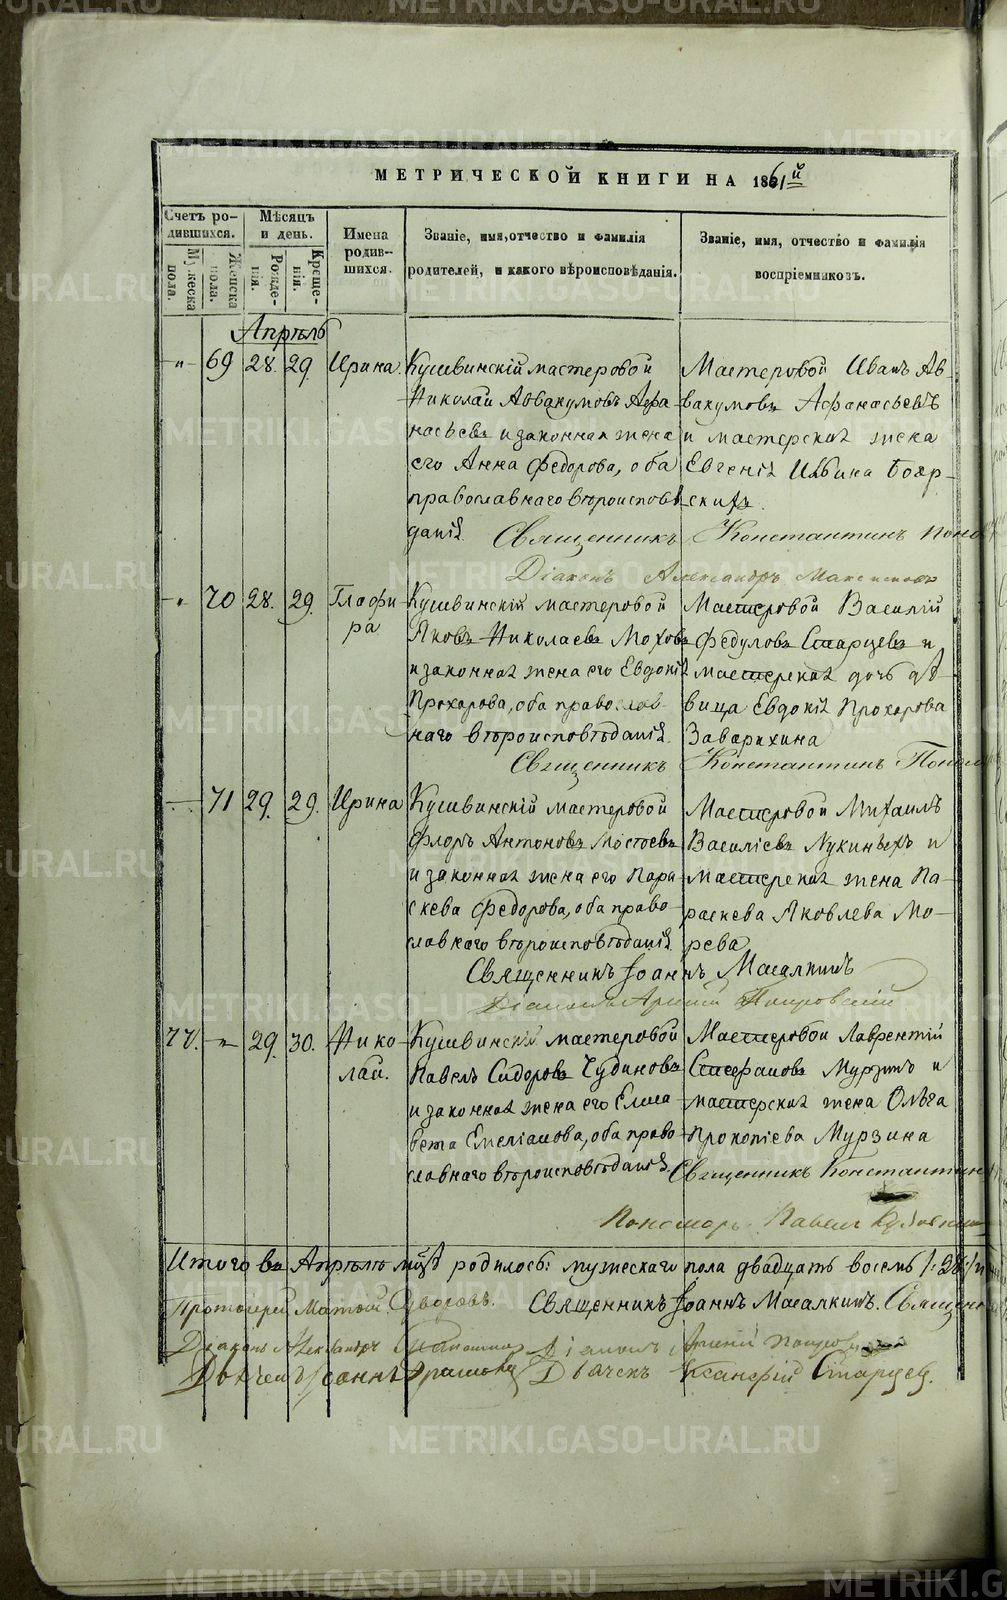 МЕТРИЧЕСКОЙ КНИГИ НА 1861й
Счетъ ро-
дившихся.
Мужеска
пола.
Женска
пола.
Мѣсяцъ
и день.
Рожде-
нія.
Креще-
нія.
Имена
родив-
шихся.
Званіе, имя, отчество и фамилія
родителей, и какого вѣроисповѣданія.
Званіе, имя, отчество и фамилія
воспріемниковъ.
Апрѣль
69 28. 29. Ирина.
Кушвинскій мастеровой
Николай Аввакумовъ Афа-
насьевъ и законная жена
его Анна Федорова, оба
православнаго вѣроисповѣ
данія.
Мастеровой Иванъ Ав-
вакумовъ Афанасьевъ
и мастерская жена
Евгенія Бояр-
скихъ.
Священникъ Константинъ
Діаконъ Александръ
70 28. 29. Глафи-
ра
Кушвинскій мастеровой
Яковъ Николаевъ Моховъ
и законная жена его Евдокія
Прохорова, оба православ-
наго вѣроисповѣданія.
Мастеровой Василій
Федуловъ Старцевъ и
мастерская дочь дѣ-
вица Евдокія Прохорова
Заварихина
Священникъ Константинъ
71 29. 29. Ирина
Кушвинскій мастеровой
Флоръ Антоновъ
и законная жена его Пара
скева Федорова, оба право-
славнаго вѣроисповѣданія.
Мастеровой Михаилъ
Василіевъ Лукиныхъ и
мастерская жена Па-
раскева Яковлева Мо-
рева
Священникъ Іоаннъ Масалкинъ
77. 29. 30. Нико-
лай.
Кушвинскій мастеровой
Павелъ Сидоровъ Чудиновъ
и законная жена его Елиса
вета Емеліанова, оба право
славнаго вѣроисповѣданія.
Мастеровой Лаврентій
Стефановъ Мурзинъ и
мастерская жена Ольга
Прокопіева Мурзина
Священникъ Константинъ
Пономарь Павелъ
Итого въ Апрѣлѣ родилось: мужескаго пола двадцать восемь
Протоіерей Священникъ Іоаннъ Масалкинъ.
Діаконъ Александръ Діаконъ
Дьячекъ Іоаннъ Дьячекъ Ксанфій Старцев.
METRIKI.GASO-URAL.RU